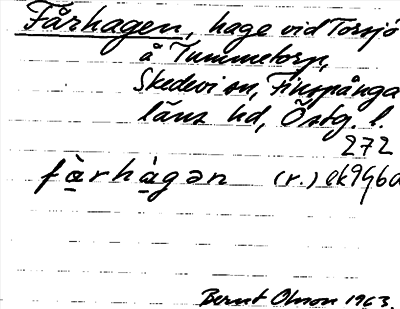 Fårhagen, hage vid Torsjö
å Tummetorp,
Skedevi sn, Finspånga
läns hd, Östg. l.
272
fàrhàgən (r.)
Bernt Olsson 1963.